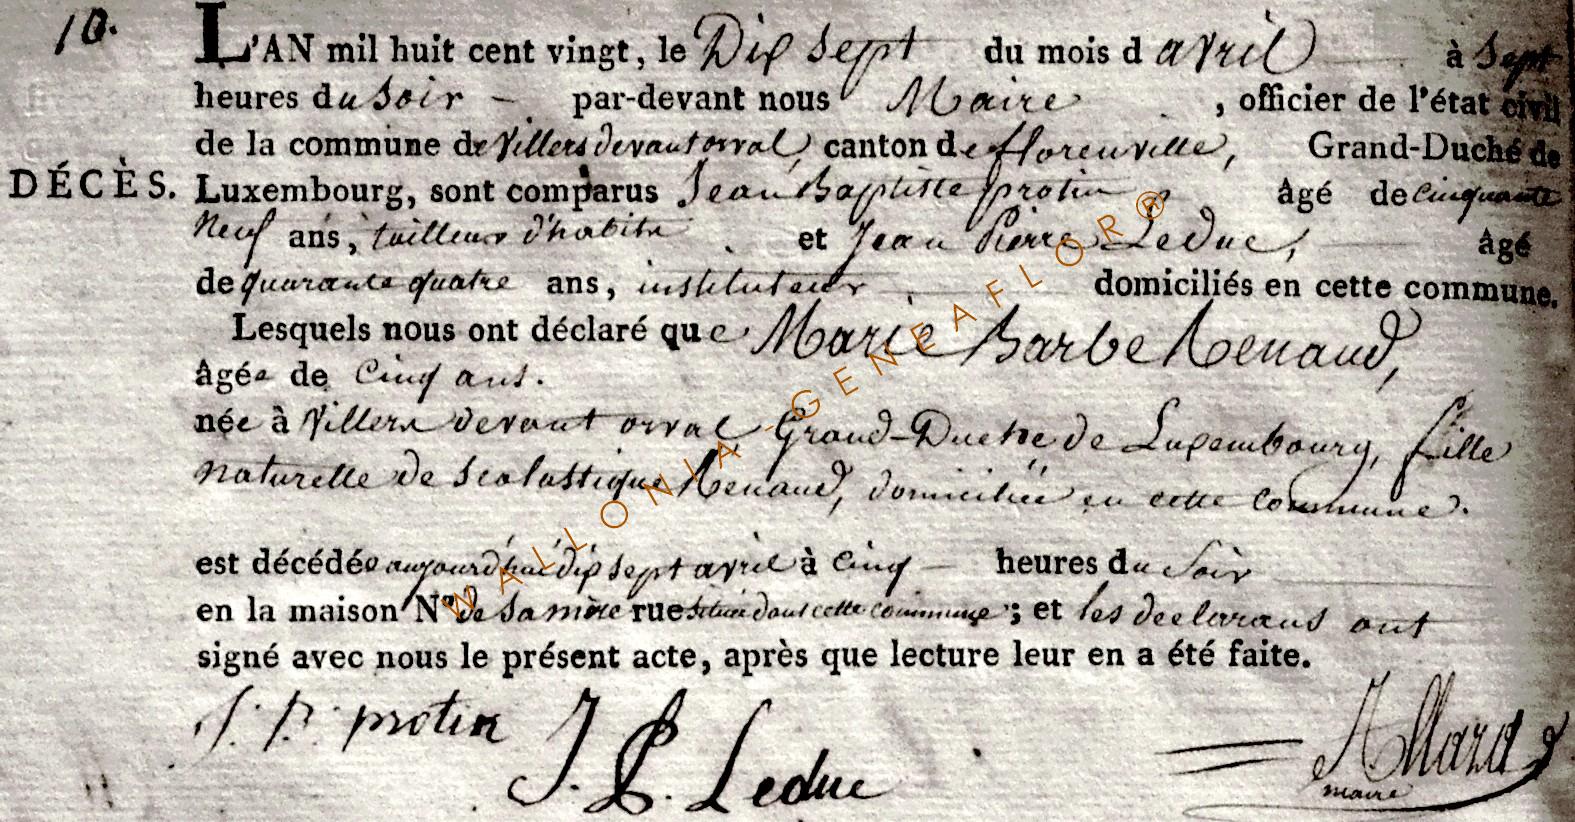 10.
L'AN mil huit cent vingt, le Dix sept du mois d avril à sept
heures du soir par-devant nous Maire , officier de l'état civil
de la commune de Villers devant orval, canton de florenville, Grand-Duché de
DÉCÈS. Luxembourg, sont comparus Jean Baptiste protin, âgé de cinquante
Neuf ans, tailleur d'habits et Jean Pierre Leduc, âgé
de quarante quatre ans, instituteur domiciliés en cette commune.
Lesquels nous ont déclaré que Marie Barbe Renaud,
âgée de Cinq ans.
née à Villers devant orval Grand-Duché de Luxembourg, fille
naturelle de Scolastique Renaud, domiciliée en cette commune.
est décédée aujourd'hui dix sept avril à cinq heures du soir
en la maison N° de sa mère rue située dans cette commune ; et les déclarans ont
signé avec nous le présent acte, après que lecture leur en a été faite.
J. B. protin J. P. Leduc
maire
WALLONIA - GENEAFLOR ®